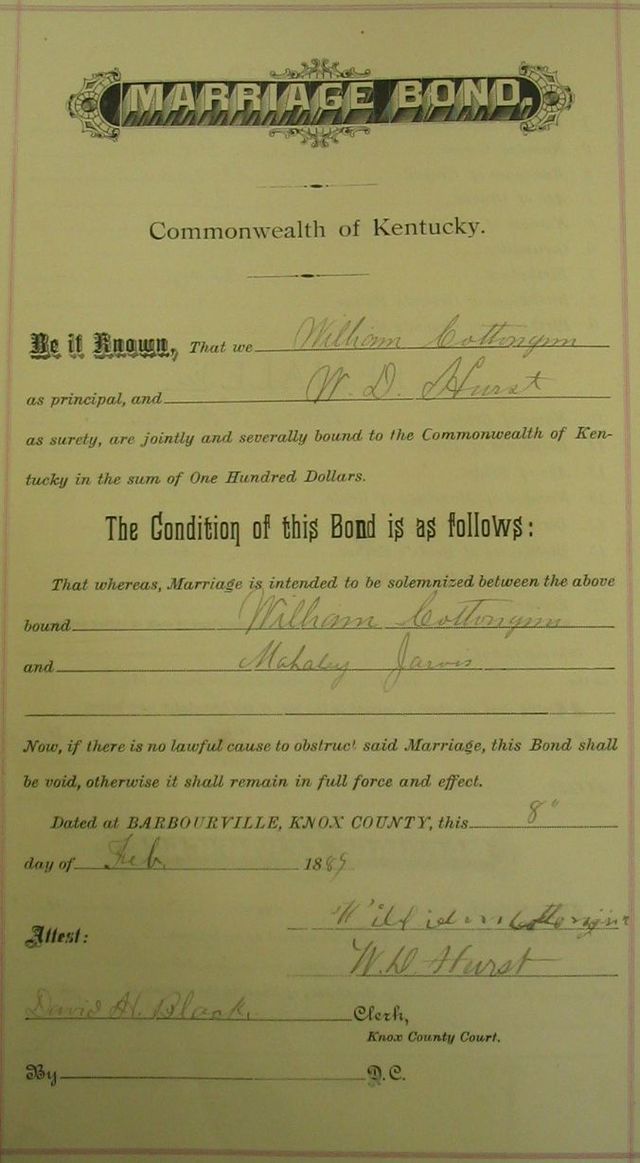 MARRIAGE BOND.
Commonwealth of Kentucky.
Be it Known, That we William Cottongim
as principal, and W. D. Hurst
as surety, are jointly and severally bound to the Commonwealth of Ken-
tucky in the sum of One Hundred Dollars.
The Condition of this Bond is as follows:
That whereas, Marriage is intended to be solemnized between the above
bound William Cottongim
and Mahaley Jarvis
Now, if there is no lawful cause to obstruct said Marriage, this Bond shall
be void, otherwise it shall remain in full force and effect.
Dated at BARBOURVILLE, KNOX COUNTY, this 8"
day of Feb. 1889
William Cottongim
Attest:
W. D. Hurst
David H. Black, Clerk,
Knox County Court.
By D.C.